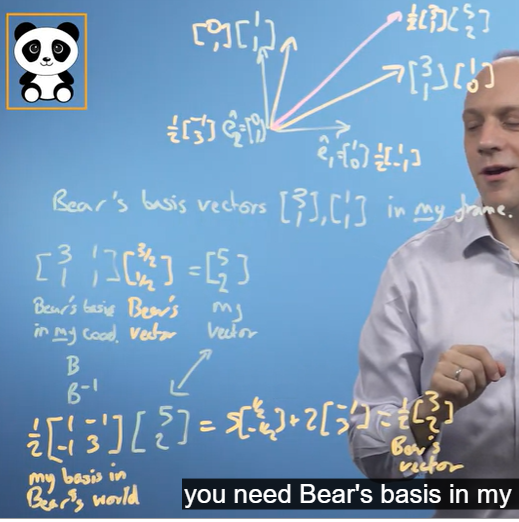 [0 1] [1 1]
½[3 1] [5 2]
[3 1] [1 0]
½[-1 3] ê₂=[0 1]
ê₁=[1 0] ½[1 -1]
Bear's basis vectors [3 1], [1 1] in my frame.
[3 1 1 1] [3/2 1/2] = [5 2]
Bear's basis Bear's my
in my coord. vector vector
B
B⁻¹
½[1 -1 -1 3] [5 2] = 5[½ -½] + 2[ -1 3 ] = ½[3 2]
my basis in Bear's
Bear's world vector
you need Bear's basis in my